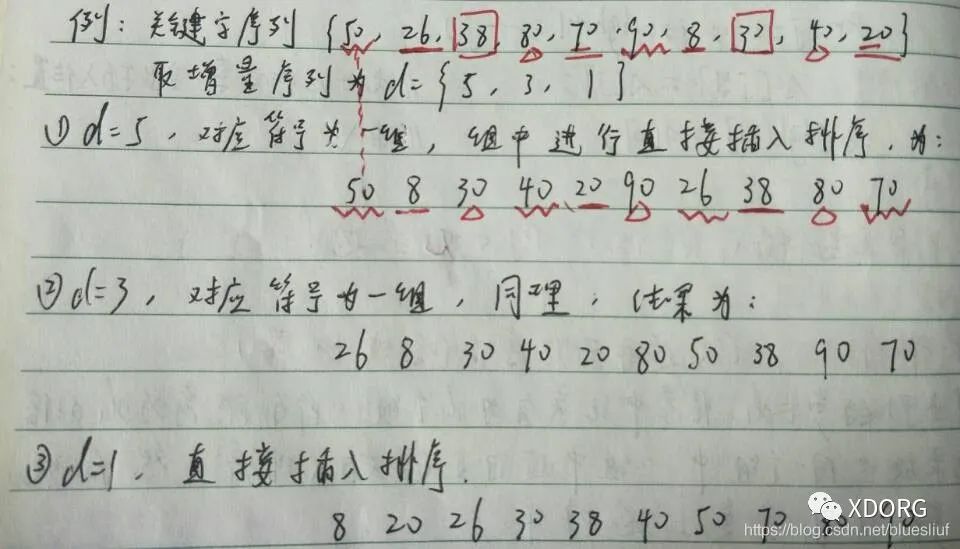 例: 关键字序列 {50, 26, 38, 80, 70, 90, 8, 30, 40, 20}
取增量序列为 d={5, 3, 1}
① d=5, 对应符号为一组, 组中进行直接插入排序, 为:
50 8 30 40 20 90 26 38 80 70
② d=3, 对应符号为一组, 同理, 结果为:
26 8 30 40 20 80 50 38 90 70
③ d=1, 直接插入排序.
8 20 26 30 38 40 50 70 80 90
XDORG
https://blog.csdn.net/bluesliuf